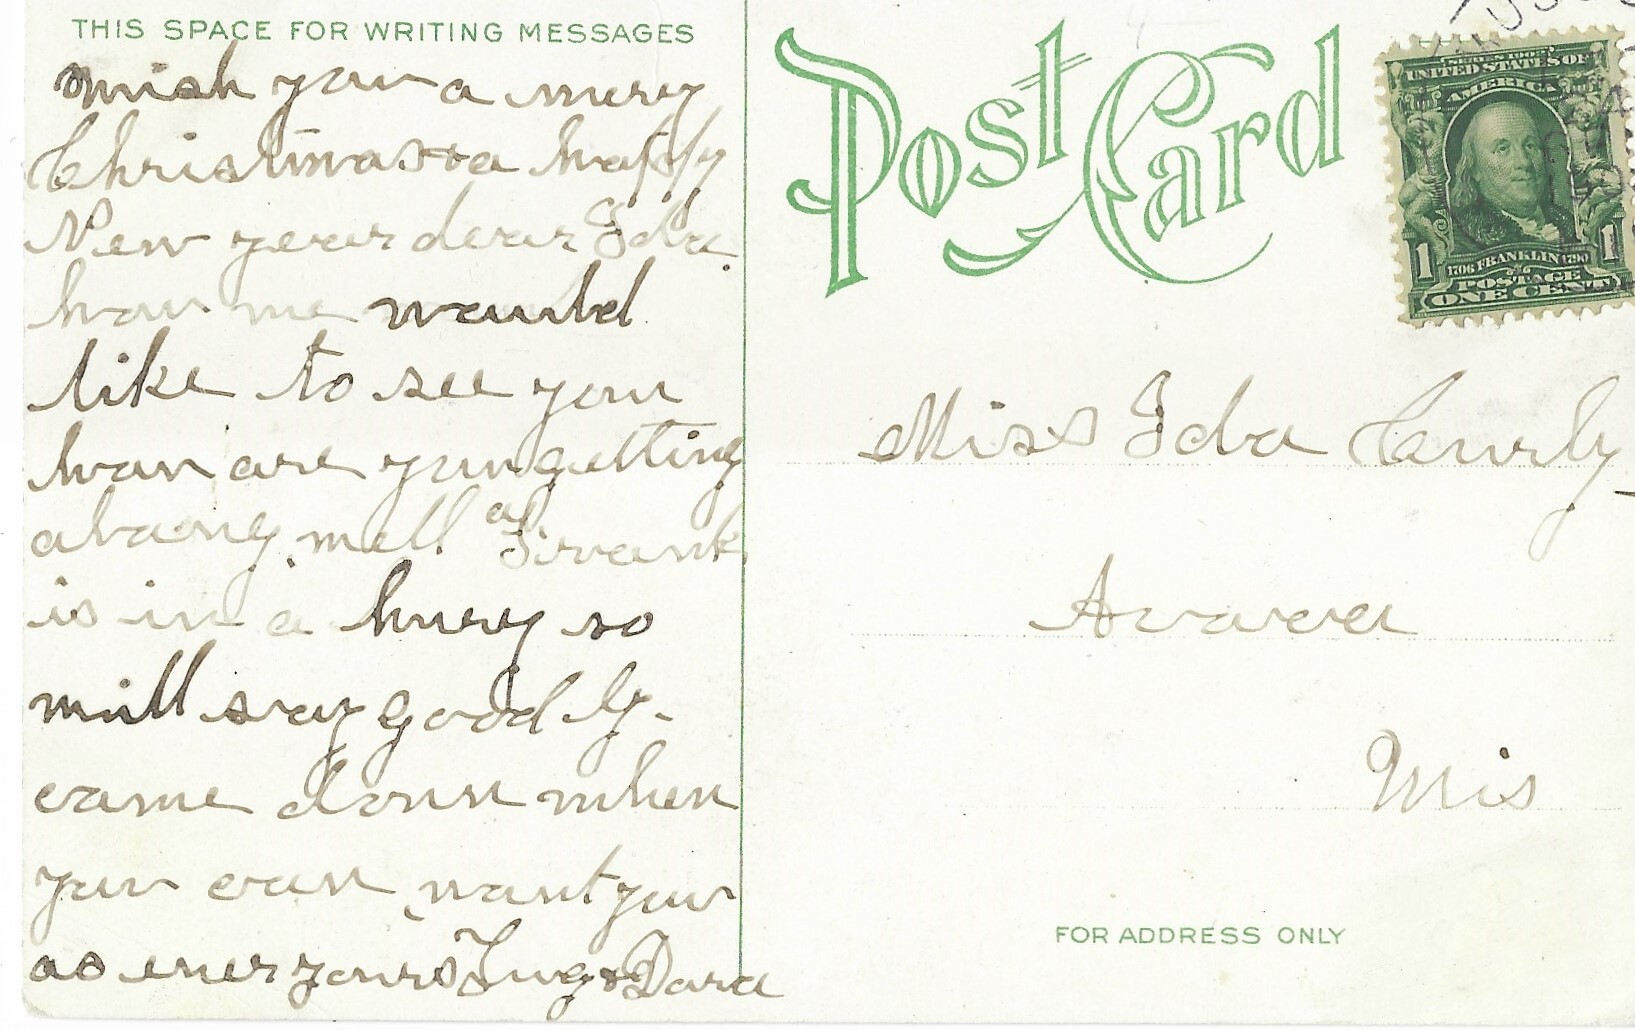 THIS SPACE FOR WRITING MESSAGES
wish you a merry
Christmas + a happy
New year dear Ida
how we would
like to see you
how are you getting
along, well as Frank
is in a hurry so
will say good by.
come down when
you can, want you
as ever yours & Dora
Post Card
SERIES 1902
UNITED STATES OF
AMERICA
1706 FRANKLIN 1790
POSTAGE
1 1
ONE CENT
Miss Ida Curly
Mis
FOR ADDRESS ONLY